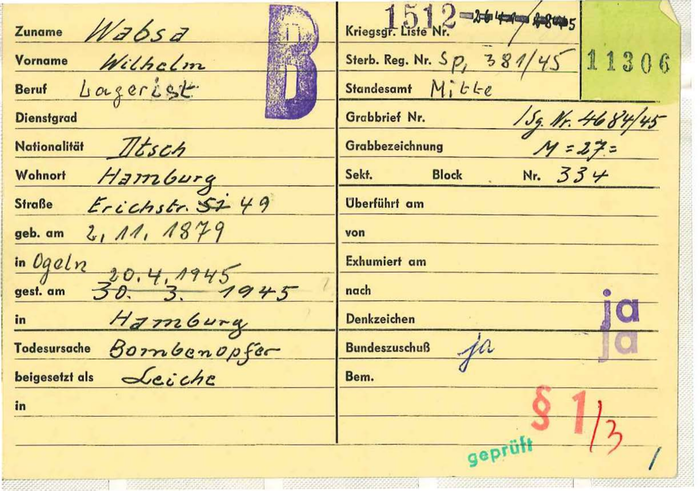 Zuname Wabsa
Vorname Wilhelm
Beruf Lagerist
Dienstgrad
Nationalität Dtsch
Wohnort Hamburg
Straße Erichstr. 49
geb. am 2. 11. 1879
in Ogeln
20. 4. 1945
gest. am 30. 3. 1945
in Hamburg
Todesursache Bombenopfer
beigesetzt als Leiche
in
B
1512
Kriegsgr. Liste Nr.
Sterb. Reg. Nr. Sp, 381/45
Standesamt Mitte
Grabbrief Nr. /Sg. Nr. 4684/45
Grabbezeichnung M = 27 =
Sekt. Block Nr. 334
Überführt am
von
Exhumiert am
nach
Denkzeichen ja
ja
Bundeszuschuß ja
Bem.
§ 1/3
geprüft
11306